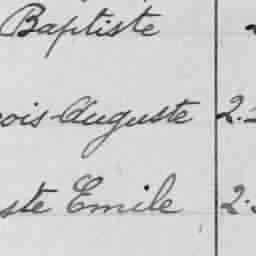 Baptiste
ois-Auguste 2.
ste Emile 2.